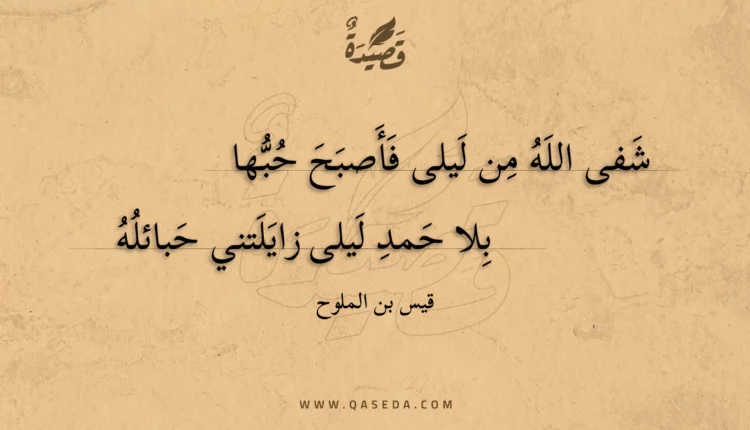 قَصِيْدَةٌ
شَفى اللَهُ مِن لَيلى فَأَصبَحَ حُبُّها
بِلا حَمدِ لَيلى زايَلَتني حَبائلُهُ
قيس بن الملوح
WWW.QASEDA.COM